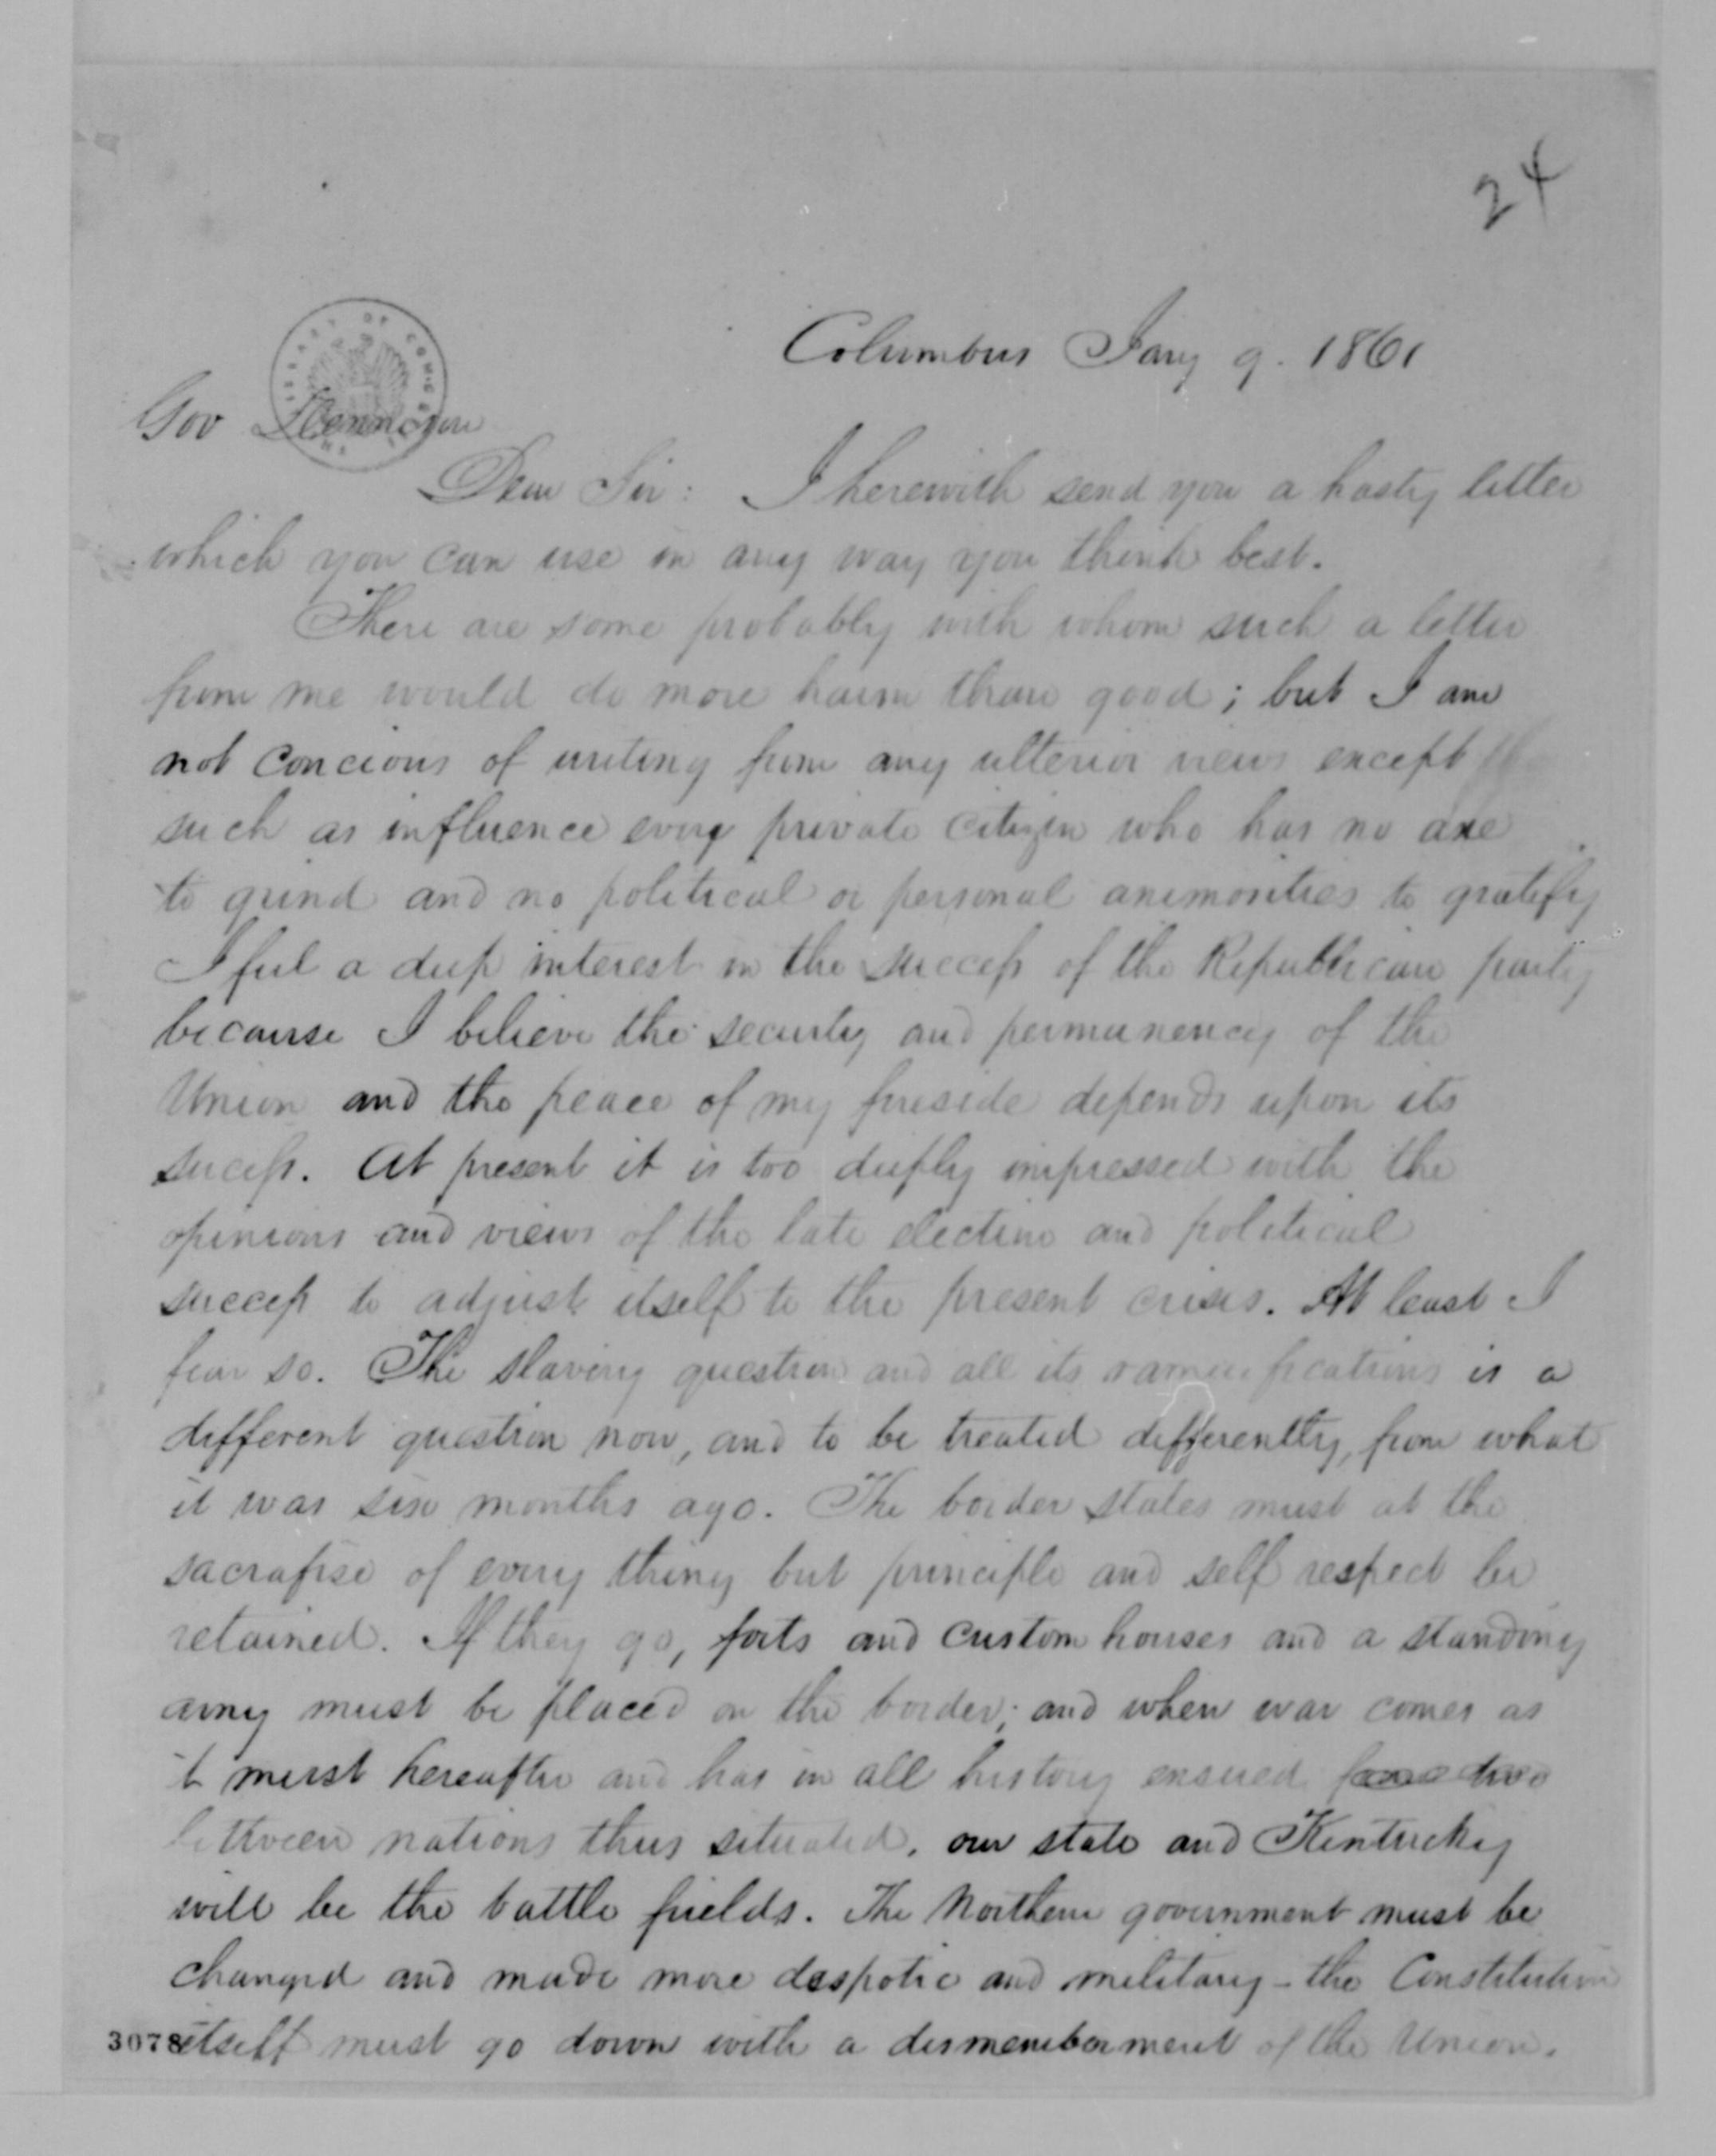 24
Columbus Jany 9. 1861
Gov Dennison
Dear Sir: I herewith send you a hasty letter
which you can use in any way you think best.
There are some probably with whom such a letter
from me would do more harm than good; but I am
not concious of writing from any ulterior views except
such as influence every private citizen who has no axe
to grind and no political or personal animosities to gratify
I feel a deep interest in the success of the Republican party
because I believe the security and permanency of the
Union and the peace of my fireside depends upon its
success. At present it is too deeply impressed with the
opinions and views of the late election and political
success to adjust itself to the present crisis. At least I
fear so. The slavery question and all its ramifications is a
different question now, and to be treated differently, from what
it was six months ago. The border states must at the
sacrafise of every thing but principle and self respect be
retained. If they go, forts and custom houses and a standing
army must be placed on the border; and when war comes as
it must hereafter and has in all history ensued
between nations thus situated, our state and Kentucky
will be the battle fields. The Northern government must be
changed and made more despotic and military - the Constitution
3078 itself must go down with a dismemberment of the Union.